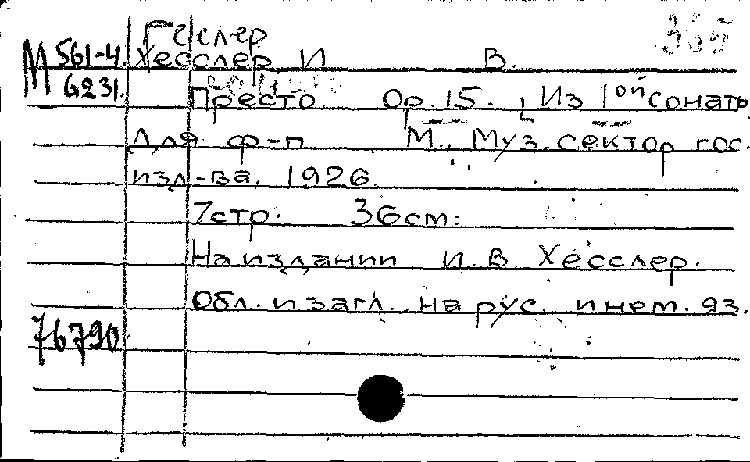 Гесслер
М 561-4
6231.
Хесслер И В.
Престо Ор. 15. Из 1ой сонаты
для ф-п М., Муз. сектор гос.
изд-ва, 1926
7стр. 36см.
На издании И. В Хесслер.
Обл. и загл. на рус. и нем. яз.
76790